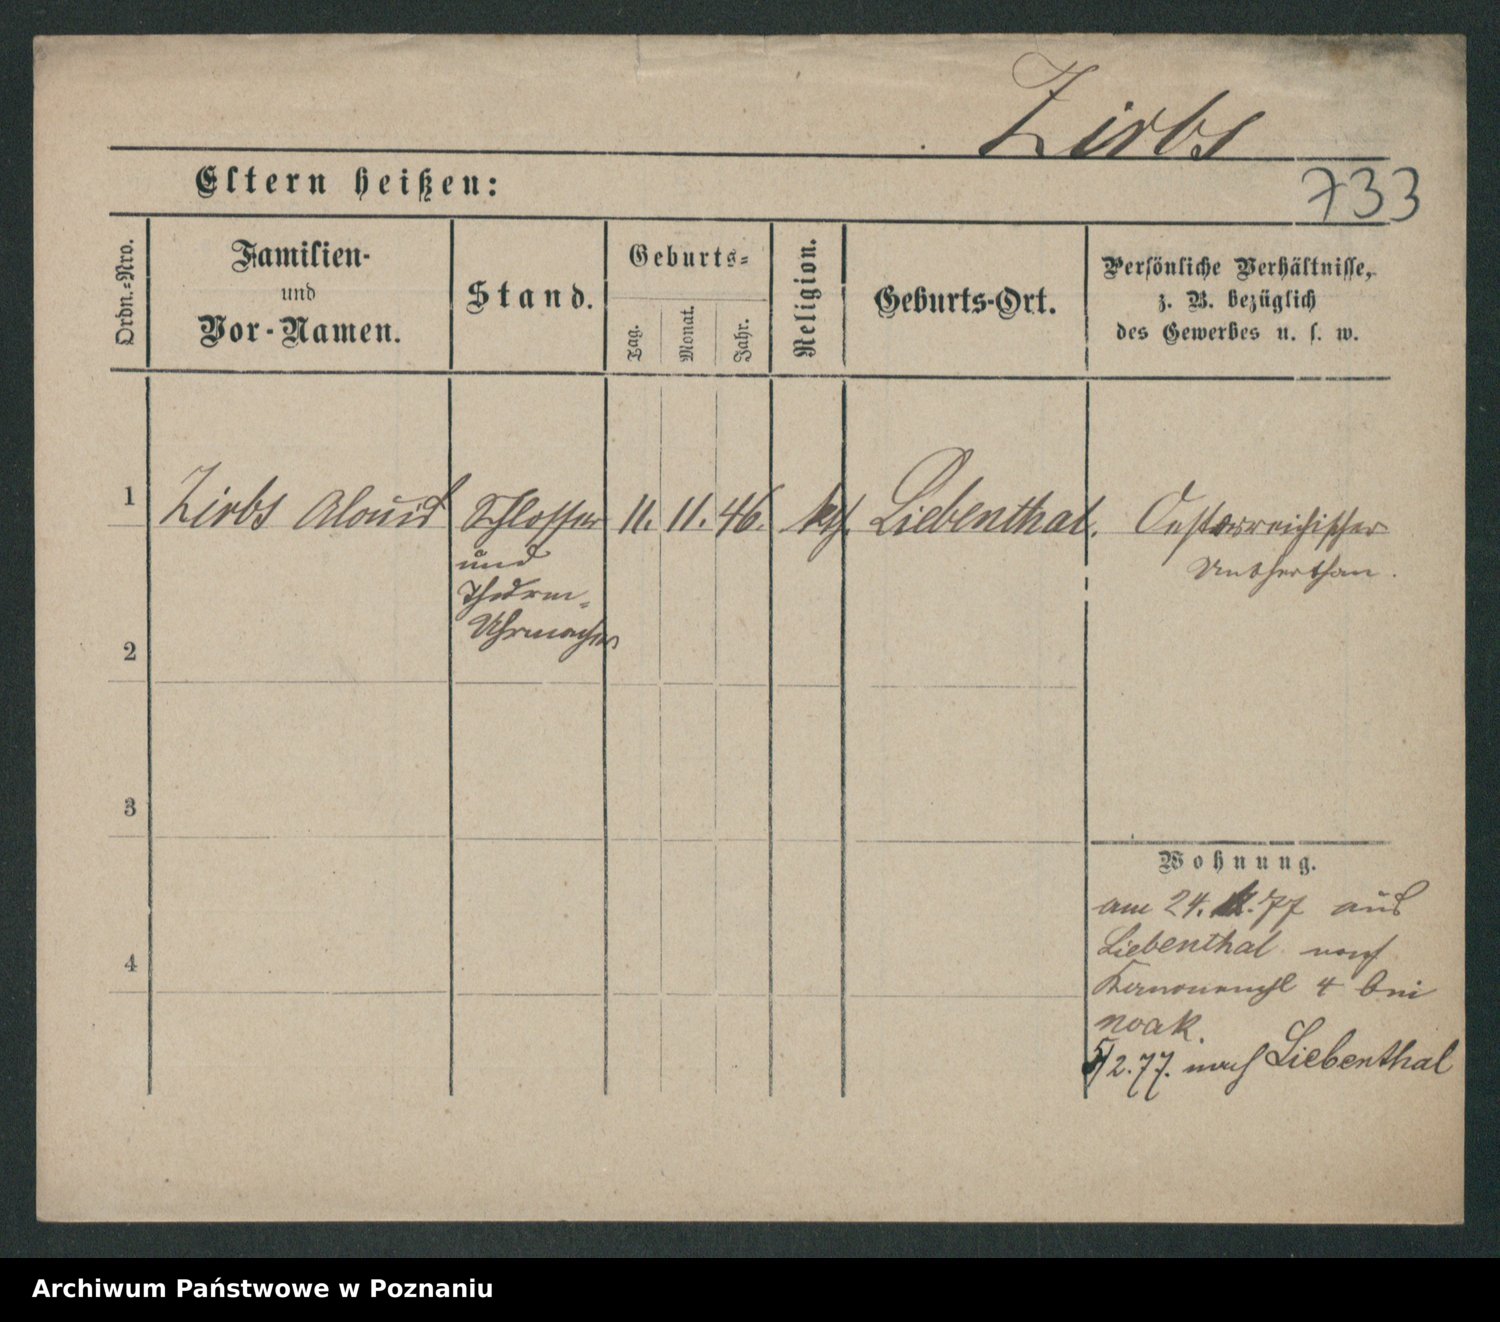 Zirbs
733
Eltern heißen:
Ordn.-Nro.
Familien-
und
Vor-Namen.
Stand.
Geburts-
Tag.
Monat.
Jahr.
Religion.
Geburts-Ort.
Persönliche Verhältnisse,
z. B. bezüglich
des Gewerbes u. s. w.
1
Zirbs
Schlosser
11. 11. 46.
kth.
Liebenthal.
Oesterreichischer
Unterthan.
und
Thurm-
Uhrmacher
2
3
4
Wohnung.
am 24. 77 aus
Liebenthal nach
4 bei
Noak.
5/2.77. nach Liebenthal
Archiwum Państwowe w Poznaniu